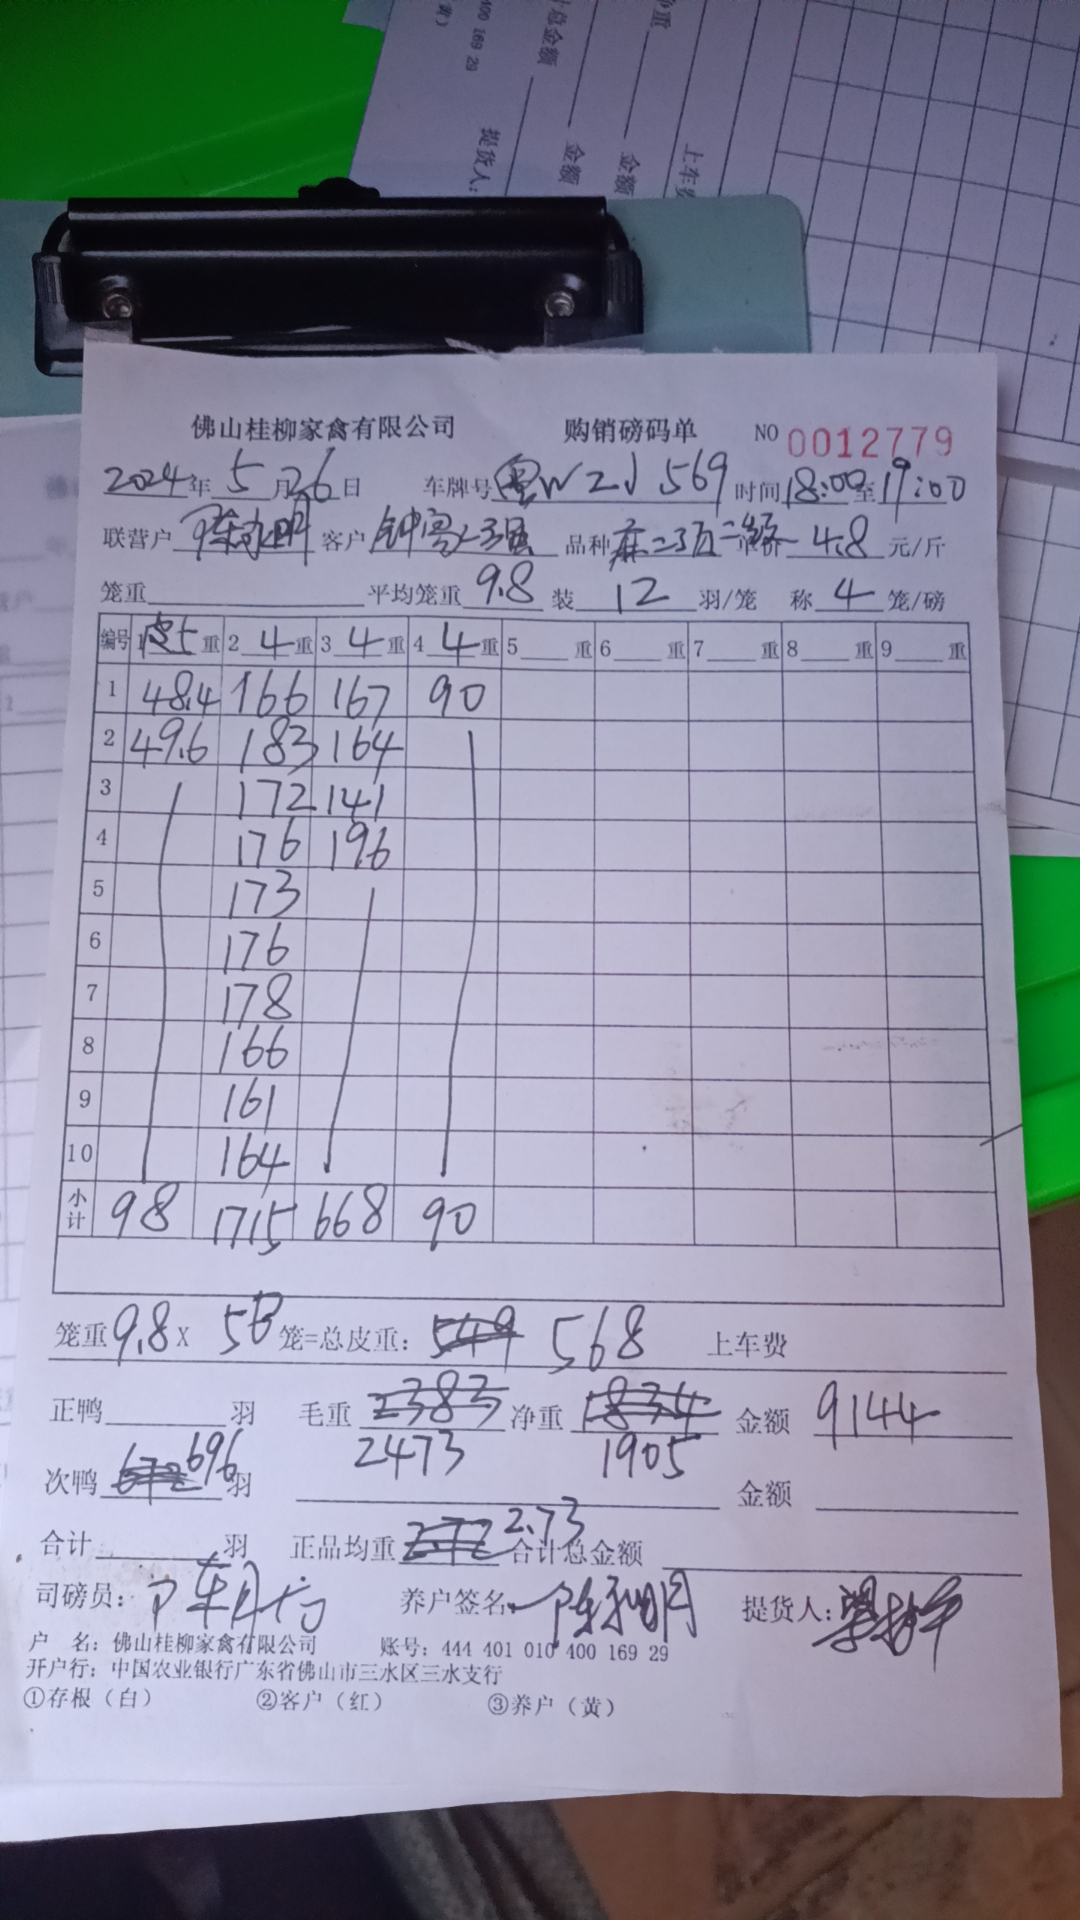 佛山桂柳家禽有限公司 购销磅码单 NO 0012779
2024年 5 月 26 日 车牌号 粤W2J569 时间 18:00 至 19:00
联营户 陈永明 客户 品种 单价 4.8 元/斤
笼重 平均笼重 9.8 装 12 羽/笼 称 4 笼/磅
编号 1 皮5 重 2 4 重 3 4 重 4 4 重 5 重 6 重 7 重 8 重 9 重
1 48.4 166 167 90
2 49.6 183 164
3 172 141
4 176 196
5 173
6 176
7 178
8 166
9 161
10 164
小计 98 1715 668 90
笼重 9.8 X 58 笼=总皮重: 549 568 上车费
正鸭 羽 毛重 2383 净重 1834 金额 9144
2473 1905
次鸭 672 696 羽 金额
合计 羽 正品均重 2.72 2.73 合计总金额
司磅员: 养户签名 陈永明 提货人:
户 名: 佛山桂柳家禽有限公司 账号: 444 401 010 400 169 29
开户行: 中国农业银行广东省佛山市三水区三水支行
①存根（白） ②客户（红） ③养户（黄）